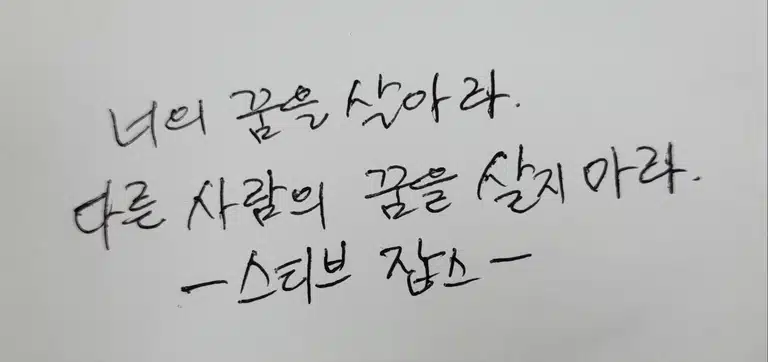 너의 꿈을 살아라.
다른 사람의 꿈을 살지 마라.
- 스티브 잡스 -